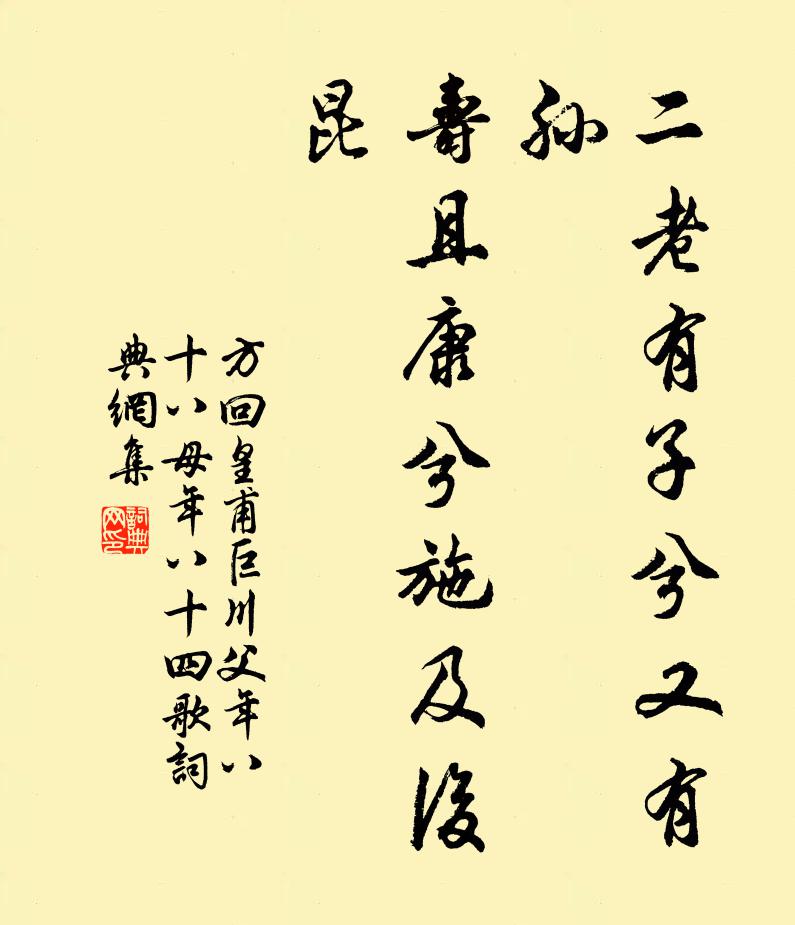 二老有子兮又有
孫
壽且康兮施及後
昆
方回皇甫巨川父年八
十八母年八十四歌詞
典網集
詞典
网印